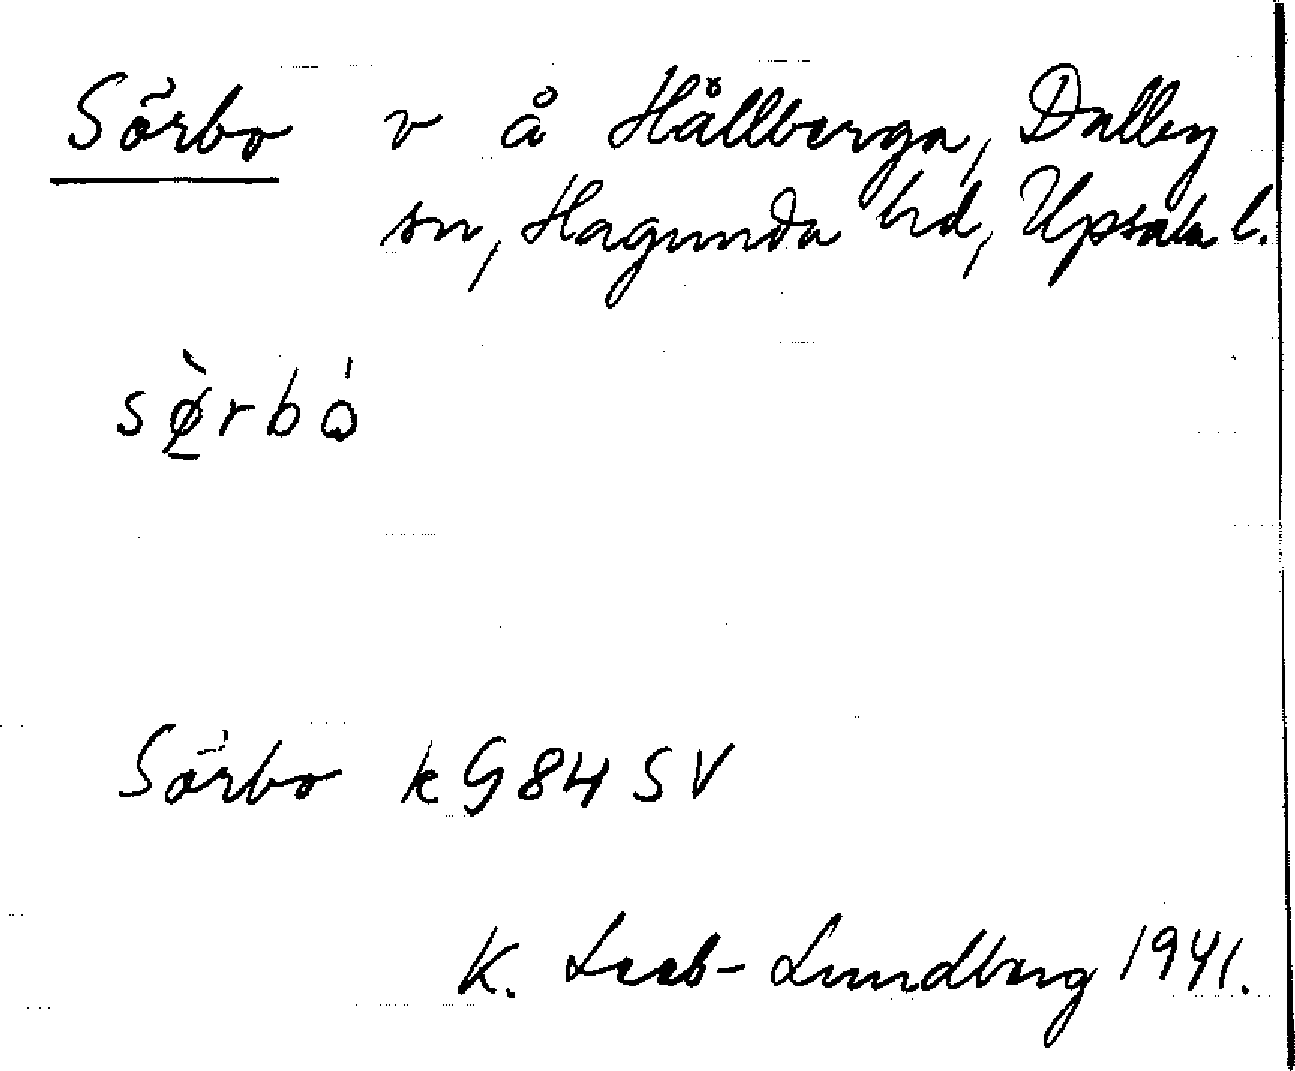 Sörbo v å Hållberga, Dalby
sn, Hagunda hd, Upsala l.
sø̀rbó
Sörbo kG 84 SV
K. Leeb-Lundberg 1941.